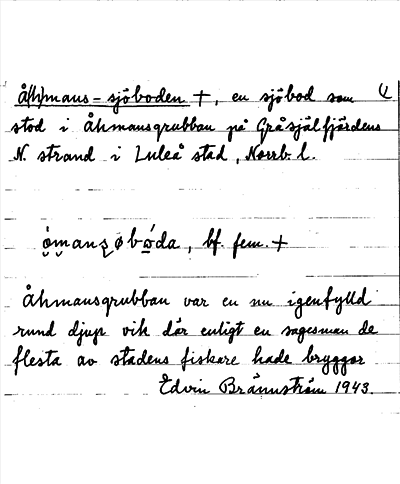 Å(h)mans-sjöboden +, en sjöbod som
stod i Åhmansgrubban på Gråsjälfjärdens
N. strand i Luleå stad, Norrb. l.
bf. fem. +
Åhmansgrubban var en nu igenfylld
rund djup vik där enligt en sagesman de
flesta av stadens fiskare hade bryggor
Edvin Brännström 1943.